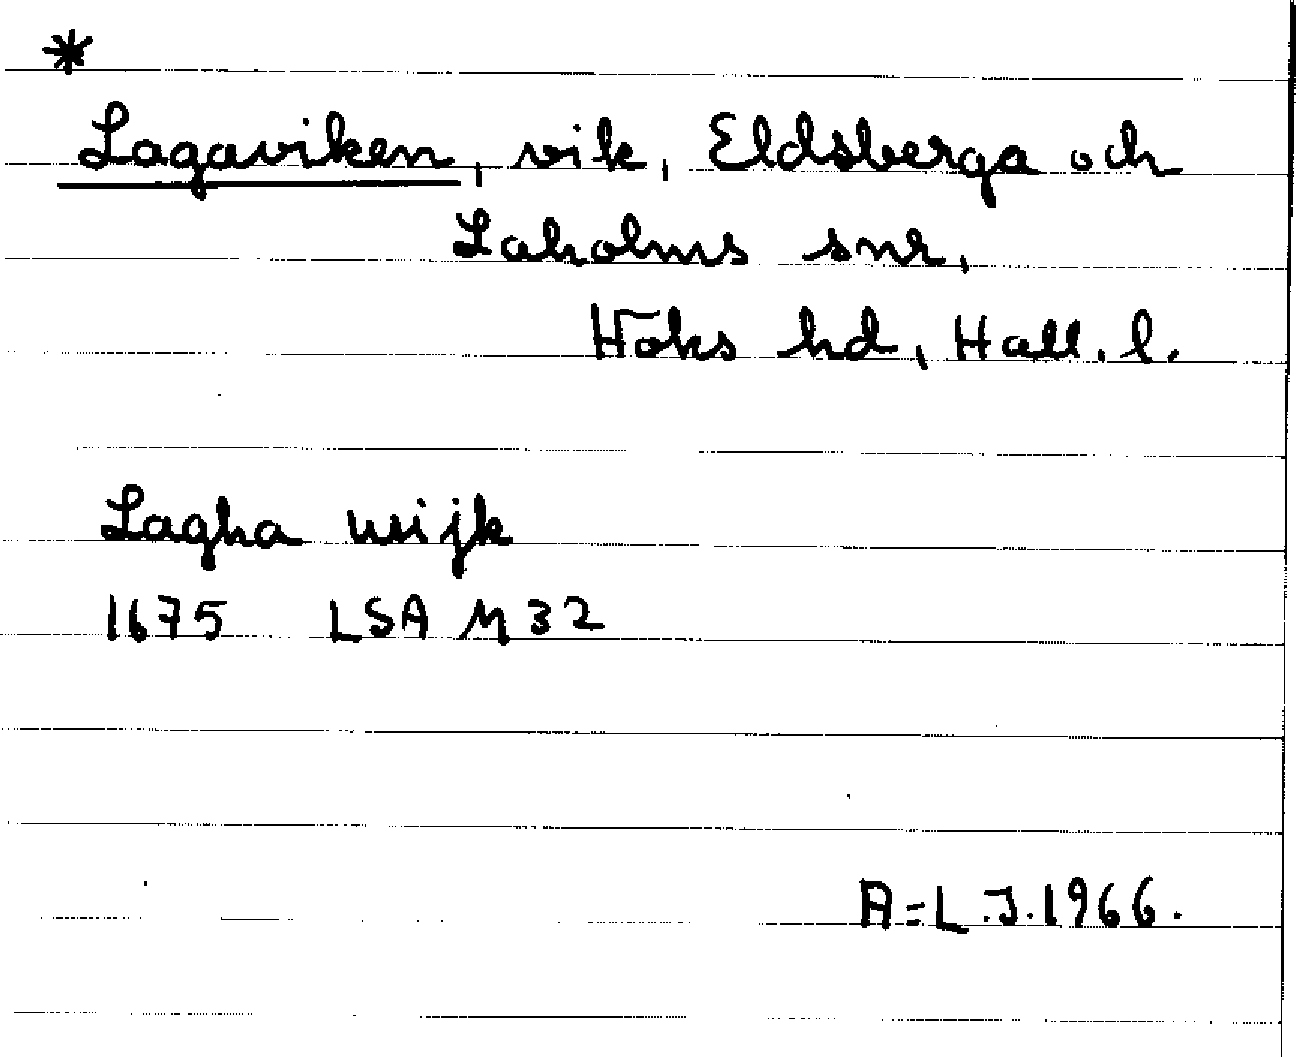 *
Lagaviken, vik, Eldsberga och
Laholms snr,
Höks hd, Hall. l.
Lagha wijk
1675 LSA M 32
A=L.J.1966.